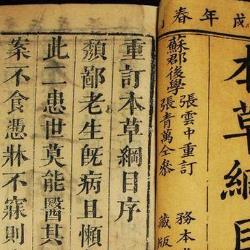 戌年春
本草綱目
蘇郡後學
張雲中重訂
張青萬全參
務本
藏版
重訂本草綱目序
頹鄙老生既病且懶
此二患世莫能醫其
案不食憑牀不寐則